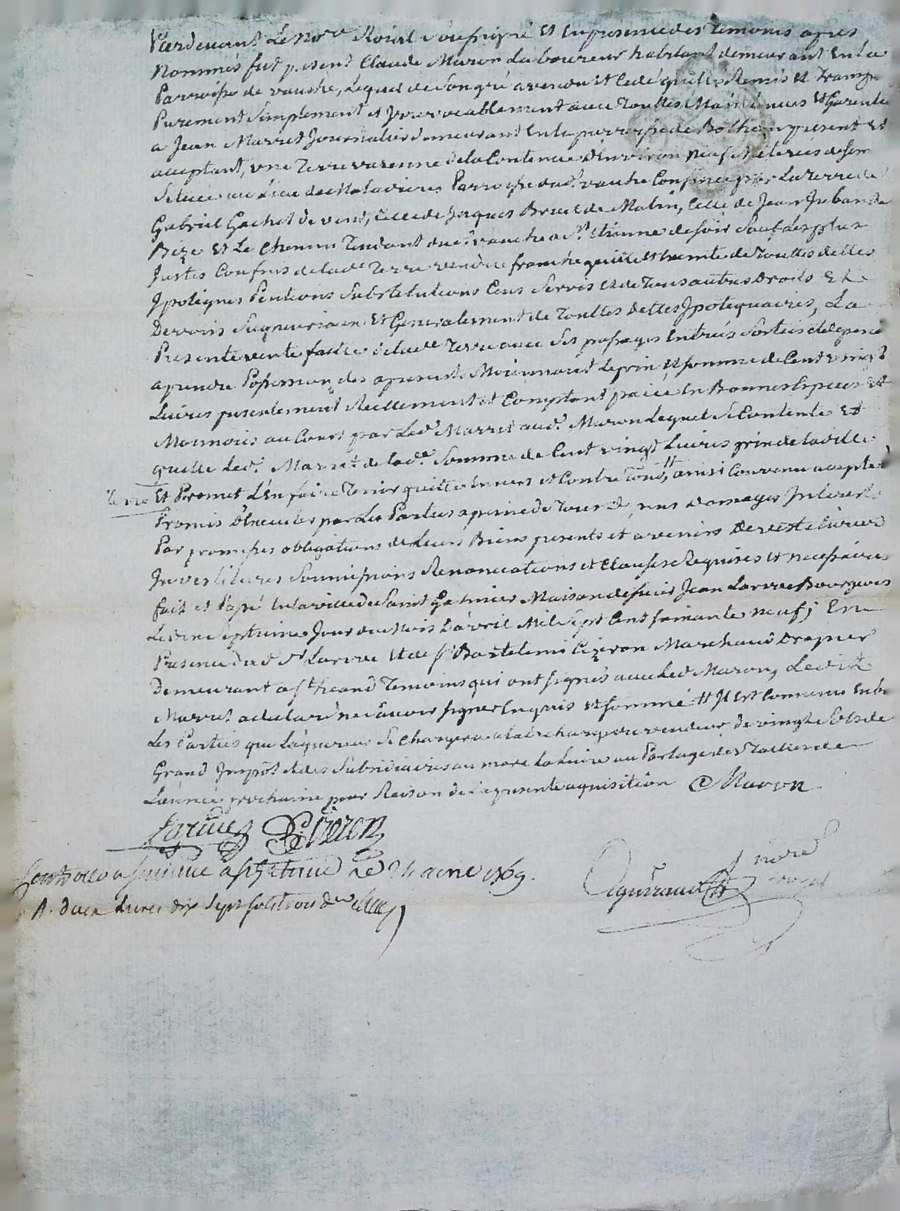 Pardevant Le No.re Roial Sousigné Et En presence des Temoins apres
Nommés fut présent Claude Maron Laboureur habitant demeurant En la
Parroisse de vauche, Lequel de Son gré a vendu Et Cedé quitté Remis Et Transp.
Purement Simplement et Irrevocablement avec Touttes Maintenues Et Garentie
a Jean Marret Journalier demeurant En la parroisse de Botheon present Et
acceptant, une Terre varenne de la Contenue d'Environ neuf Meterées de Sem
Situee au lieu des Maladieres Parroisse dud. vauche Confinée par La Terre de
Gabriel Gachet de vent, Celle de Jacques Bruel de Matin, Celle de Jean
Bize Et Le Chemin Tendant de vauche a S.t Etienne de Soir Sauf Ses plus
Justes Confins de lad.e Terre vendue franche quitte et Exempte de Touttes dettes
Ipoteques Pentions Substitutions Cens Servis Et de Tous autres Droits Et
Devoirs Seigneuriaux Et Generalement de Touttes dettes Ipotequaires, La
Presente vente faitte de lad.e Terre avec Ses passages Entrées Sorties
a prendre Possession des apresent Moiennant Le prix Et Somme de Cent vingt
Livres presentement Reellement Et Comptant paiée En Bonnes Especes Et
Monnoie au Court par Led. Marret aud. Maron Lequel Se Contente Et
quitte Led. Marret de lad.e Somme de Cent vingt Livres prix de la ditte
Terre Et Promet L'en faire Tenir quitte Envers et Contre Tous, ainsi Convenu accepté
Promis d'Executer par Les Parties a peine de Tous Depens Domages Interest
Par promesses obligations de Leurs Biens presents et a venirs De veste
Investitures Soumissions Renonciations et Clauses Requises et necessaires
fait et Passé En la ville de Saint Galmier Maison de Sieur Jean Larive Bourgeois
Le vingt septieme Jour du Mois d'avril Mil Sept Cent Soixante neuf, En
Presence dud. S.r Larive Et de S.r Bartelemi Cizeron Marchand Drapier
demeurant a S.t heand Temoins qui ont Signés avec Led. Maron, Ledit
Marret a declaré ne Savoir Signer Enquis et Sommé Et Est Convenu Entre
Les Parties que L'aquereur Se Chargera a la decharge du vendeur de vingt Sols de
Grand Impôt Et des Subsidiaires au marc la Livre au Partage des Tailles de
L'année prochaine pour Raison de la presente acquisition C Maron
Larive Cizeron
Controllé a S.t Etienne Le avril 1769.
R. deux Livres dix Sept Sols